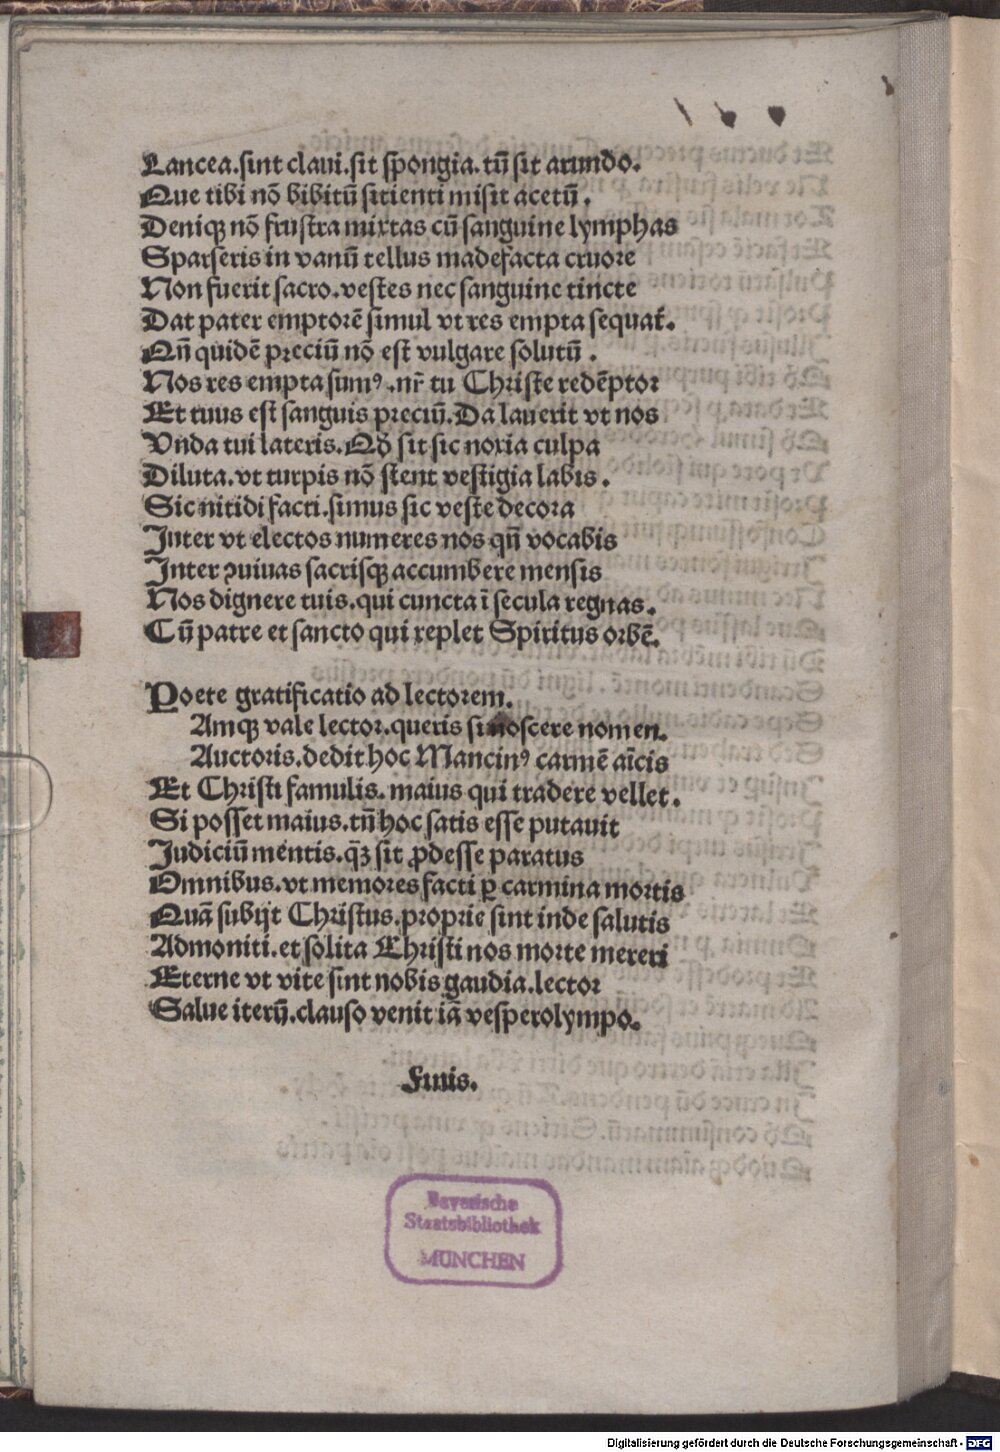 Lancea.sint claui.sit spongia.tū sit arundo.
Que tibi nō bibitū sitienti misit acetū.
Deniqꝫ nō frustra mixtas cū sanguine lymphas
Sparseris in vanū tellus madefacta cruore
Non fuerit sacro.vestes nec sanguine tincte
Dat pater emptorē simul vt res empta sequat᷑.
Qn̄ quidē preciū nō est vulgare solutū.
Nos res empta sumꝰ.nr̄ tu Christe redēptor
Et tuus est sanguis preciū.Da lauerit vt nos
Vnda tui lateris.Qd̄ sit sic noxia culpa
Diluta.vt turpis nō stent vestigia labis.
Sic nitidi facti.simus sic veste decora
Inter vt electos numeres nos qn̄ vocabis
Inter ꝯuiuas sacrisqꝫ accumbere mensis
Nos dignere tuis.qui cuncta ī secula regnas.
Cū patre et sancto qui replet Spiritus orbē.
Poete gratificatio ad lectorem.
Amqꝫ vale lector.queris si noscere nomen.
Auctoris.dedit hoc Mancinꝰ carmē aīcis
Et Christi famulis.maius qui tradere vellet.
Si posset maius.tn̄ hoc satis esse putauit
Judiciū mentis.qꝫ sit ꝓdesse paratus
Omnibus.vt memores facti ꝑ carmina mortis
Quā subijt Christus.proprie sint inde salutis
Admoniti.et solita Christi nos morte mereri
Eterne vt vite sint nobis gaudia.lector
Salue iterū.clauso venit iā vesperolympo.
Finis.
Bayerische
Staatsbibliothek
MÜNCHEN
Digitalisierung gefördert durch die Deutsche Forschungsgemeinschaft - DFG